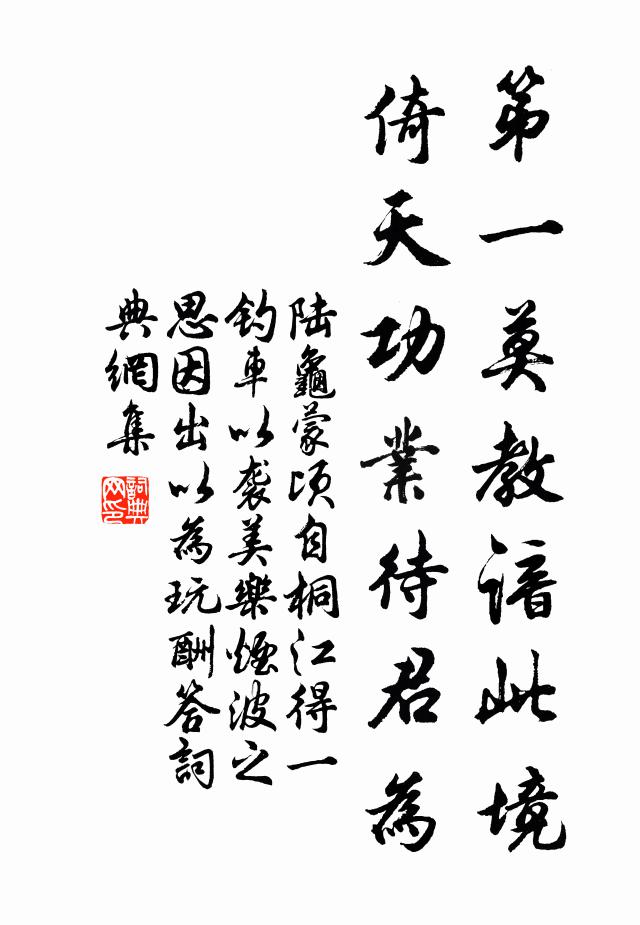 第一莫教諳此境
倚天功業待君為
陆龜蒙頃自桐江得一
釣車以襲美樂煙波之
思因出以為玩酬答詞
典網集
詞典
网印